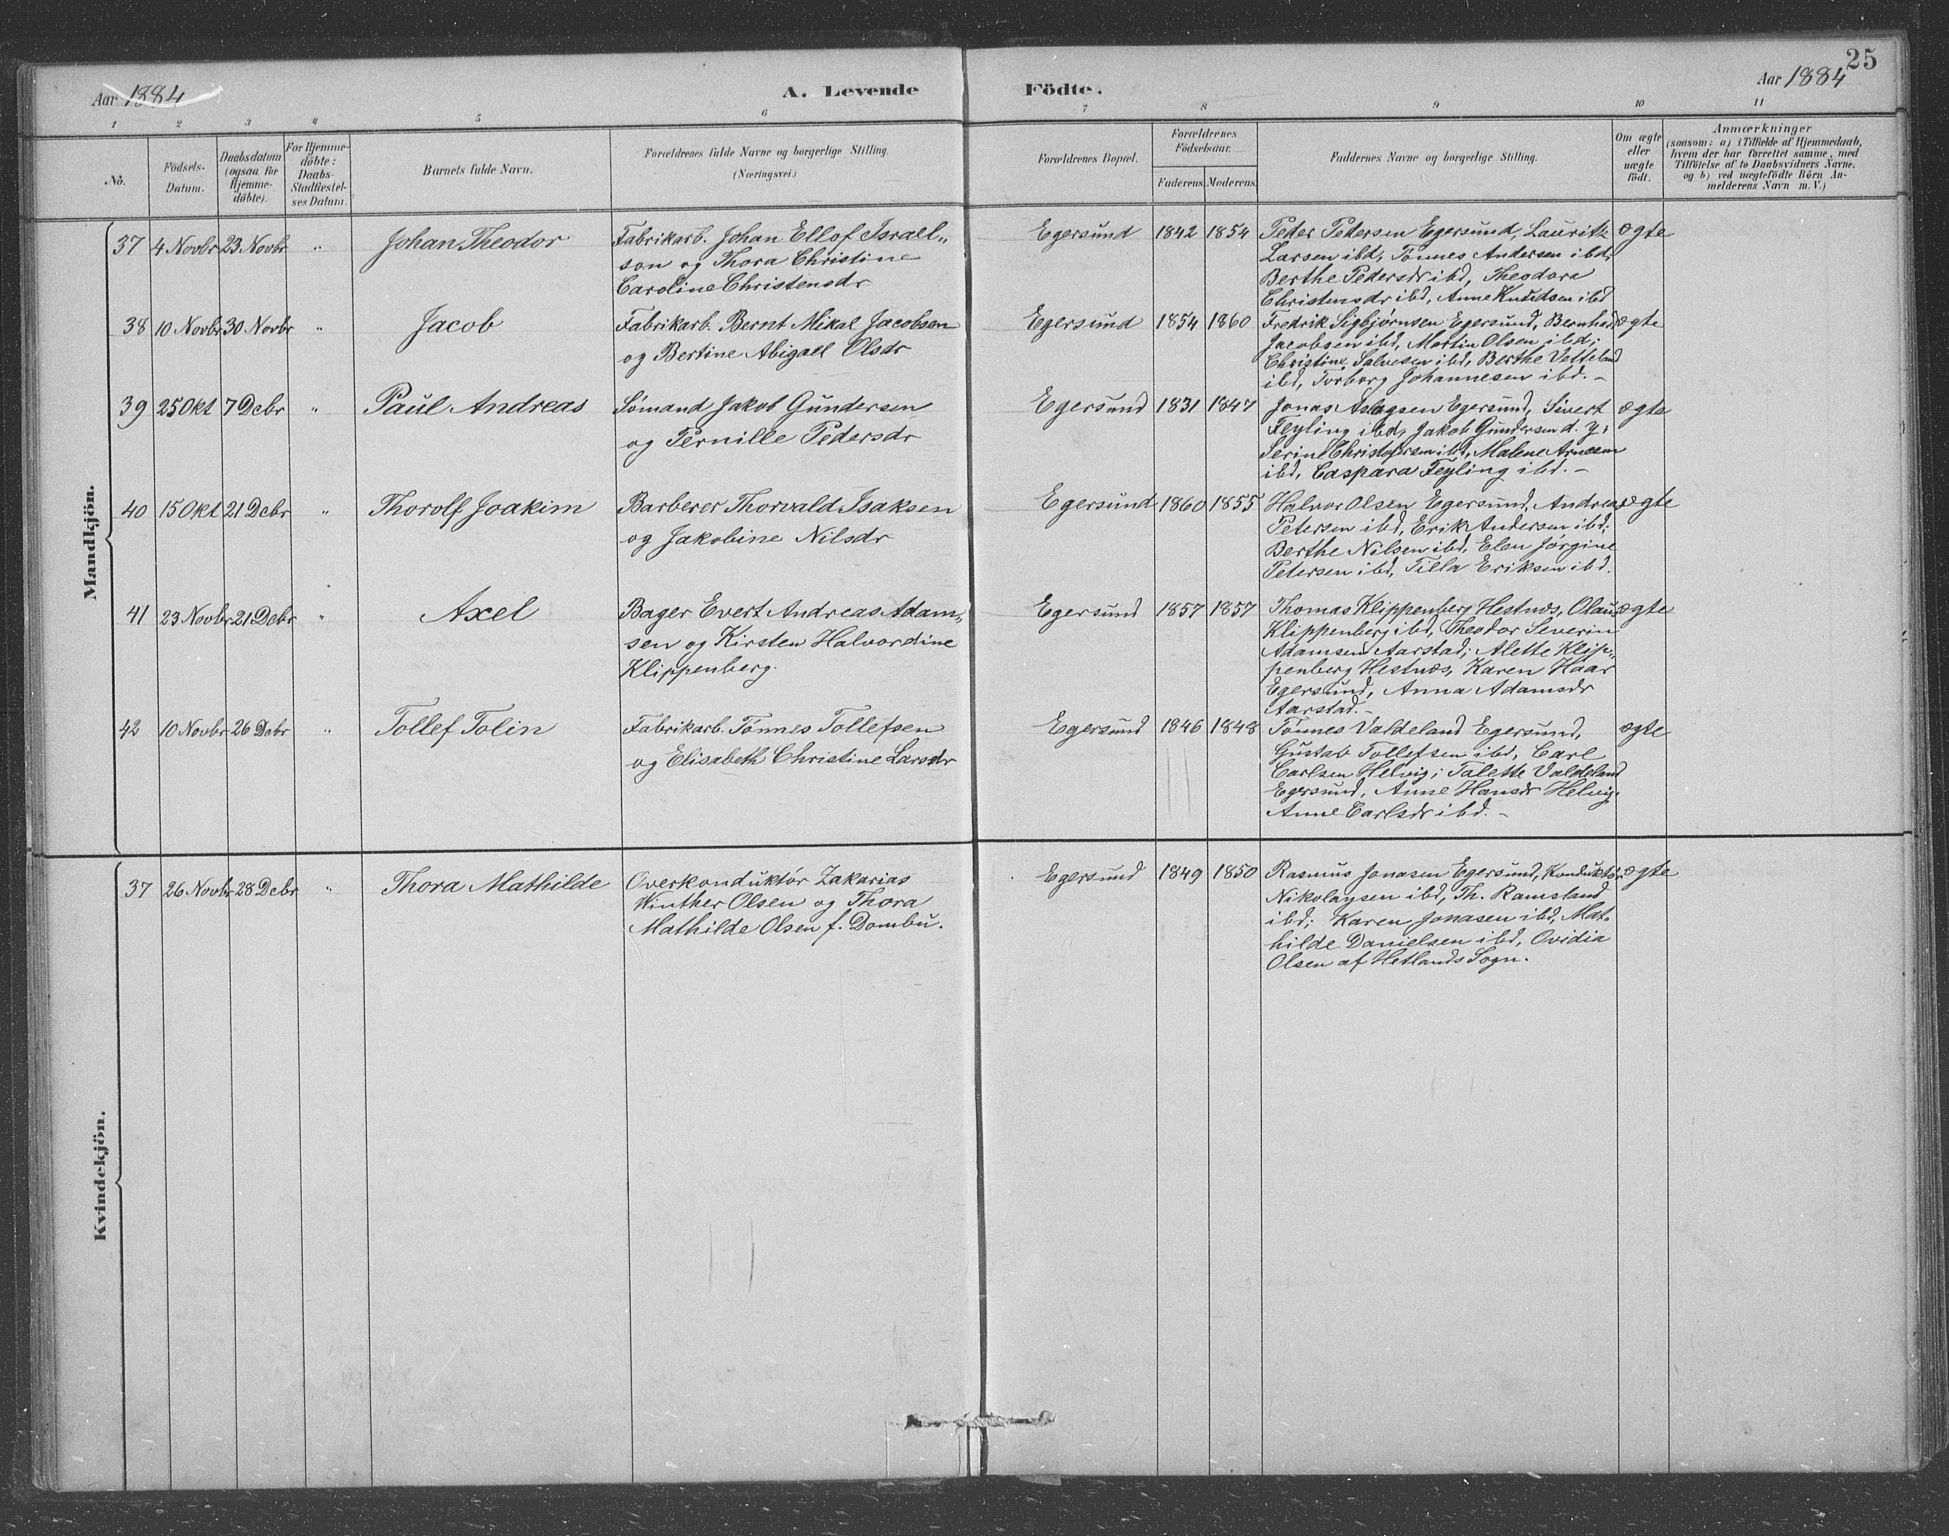 25
Aar 1884 A. Levende Födte. Aar 1884
1 2 3 4 5 6 7 8 9 10 11
No.
Födsels-
Datum.
Daabsdatum
(ogsaa for
Hjemme-
döbte).
For Hjemme-
döbte:
Daabs-
Stadfæstel-
ses Datum.
Barnets fulde Navn.
Forældrenes fulde Navne og borgerlige Stilling.
(Næringsvei.)
Forældrenes Bopæl.
Forældrenes
Födselsaar.
Faderens. Moderens.
Faddernes Navne og borgerlige Stilling.
Om ægte
eller
uægte
födt.
Anmærkninger
(saasom: a) i Tilfælde af Hjemmedaab,
hvem der har forrettet samme, med
Tilföielse af to Daabsvidners Navne,
og b) ved uægtefödte Börn An-
melderens Navn m. V.)
Mandkjön.
37 4 Novbr 23 Novbr " Johan Theodor
Fabrikarb. Johan Ellof Israel„
son og Thora Christine
Caroline Christensdr
Egersund 1842 1854
Peder Pedersen Egersund, Lauritz
Larsen ibd, Tönnes Andersen ibd;
Berthe Pedersdr ibd, Theodora
Christensdr ibd, Anne Knudsen ibd
ægte
38 10 Novbr 30 Novbr " Jacob
Fabrikarb. Bernt Mikal Jacobsen
og Bertine Abigael Olsdr
Egersund 1854 1860
Fredrik Sigbjørnsen Egersund, Bernhard
Jacobsen ibd, Martin Olsen ibd;
Christine Salvesen ibd, Berthe Vetteland
ibd, Torborg Johannesen ibd. -
ægte
39 25 Okt 7 Debr " Paul Andreas
Sömand Jakob Gundersen
og Pernille Pedersdr
Egersund 1831 1847
Jonas Aslagsen Egersund, Sivert
Feyling ibd, Jakob Gundersen d. y;
Serine Christofersen ibd, Malene Arnesen
ibd, Caspara Feyling ibd. -
ægte
40 15 Okt 21 Debr " Thorolf Joakim
Barberer Thorvald Isaksen
og Jakobine Nilsdr
Egersund 1860 1855
Halvor Olsen Egersund, Andreas
Petersen ibd, Erik Andersen ibd;
Berthe Nilsen ibd, Elen Jörgine
Petersen ibd, Tilla Eriksen ibd.
ægte
41 23 Novbr 21 Debr " Axel
Bager Evert Andreas Adam„
sen og Kirsten Halvordine
Klippenberg.
Egersund 1857 1857
Thomas Klippenberg Hestnæs, Olaus
Klippenberg ibd, Theodor Severin
Adamsen Aarstad; Alette Klip„
penberg Hestnæs, Karen Haar
Egersund, Anna Adamsdr
Aarstad. -
ægte
42 10 Novbr 26 Debr " Tollef Tolin
Fabrikarb. Tönnes Tollefsen
og Elisabeth Christine Larsdr
Egersund 1846 1848
Tönnes Valdeland Egersund,
Gustab Tollefsen ibd, Carl
Carlsen Helvig; Talette Valdeland
Egersund, Anne Hansdr Helvig.
Anne Carlsdr ibd. -
ægte
Kvindekjön.
37 26 Novbr 28 Debr " Thora Mathilde
Overkonduktör Zakarias
Winther Olsen og Thora
Mathilde Olsen f. Dombu.
Egersund 1849 1850
Rasmus Jonasen Egersund, Konduktör
Nikolaysen ibd, Th. Ramsland
ibd; Karen Jonasen ibd, Mat-
hilde Danielsen ibd, Ovidia
Olsen af Hetlands Sogn.
ægte